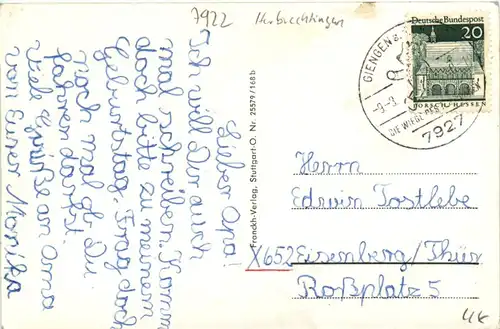 7922 Herbrechtingen
Lieber Opa!
Ich will Dir auch
mal schreiben. Komm
doch bitte zu meinem
Geburtstag. Frag doch
noch mal ob Du
fahren darfst.
Viele Grüße an Oma
von Eurer Monika
Franckh-Verlag, Stuttgart-O. Nr. 25579/168b
Deutsche Bundespost
20
LORSCH/HESSEN
GIENGEN
DIE WIEGE DES
7927
Herrn
Edwin Tostlebe
X652 Eisenberg/Thür
Roßplatz 5